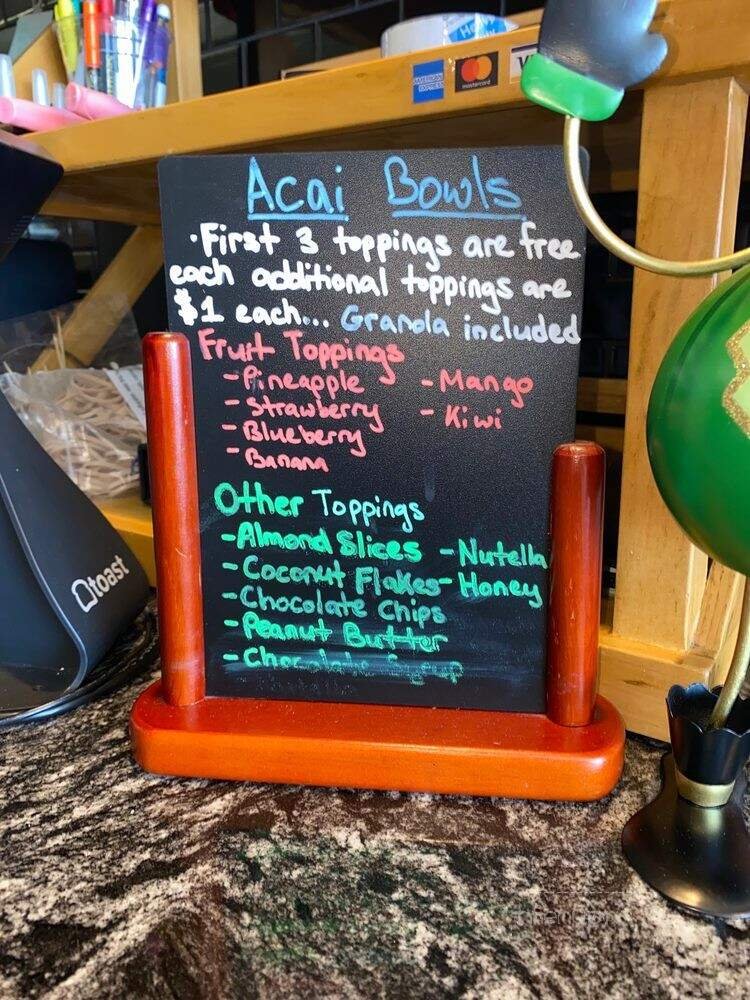 HEAVY
AMERICAN EXPRESS
mastercard
Acai Bowls
·First 3 toppings are free
each additional toppings are
$1 each... Granola included
Fruit Toppings
-Pineapple
-Mango
-Strawberry
-Kiwi
-Blueberry
-Banana
Other Toppings
-Almond Slices
-Nutella
-Coconut Flakes
-Honey
-Chocolate Chips
-Peanut Butter
-Chocolate Syrup
toast